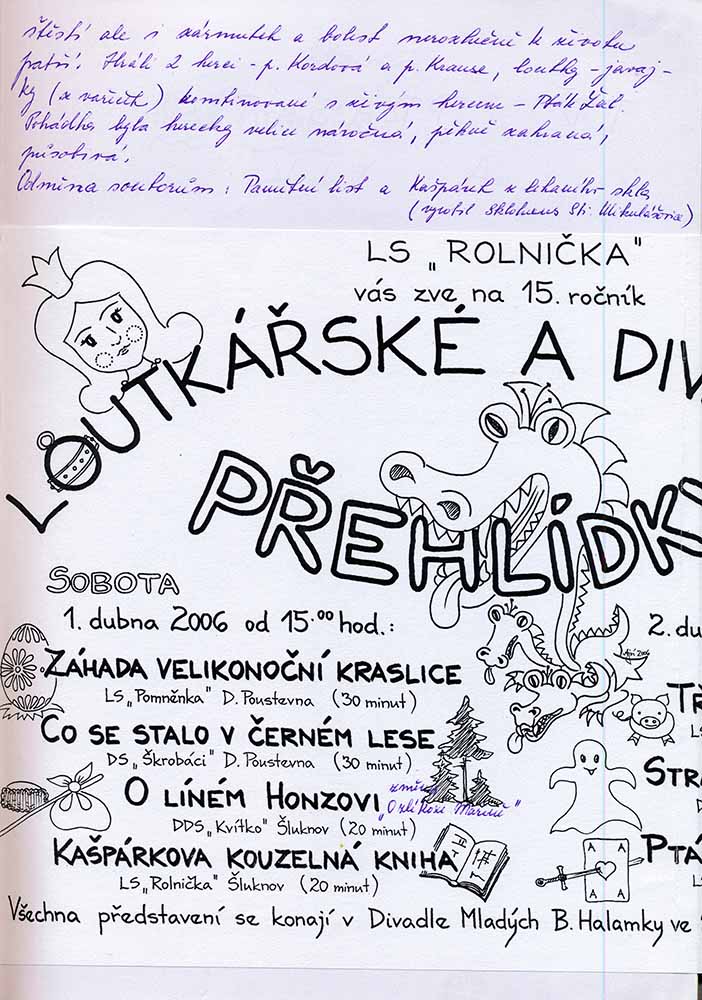 štěstí ale i zármutek a bolest nerozlučně k životu
patří. Hráli 2 herci - p. Kordová a p. Krause, loutky - javaj-
ky (z vařeček) kombinované s živým hercem - Pták Žal.
Pohádka byla herecky velice náročná, pěkně zahraná,
působivá.
Odměna souborům: Pamětní list a Kašpárek z lehaného skla
(vyrobil Sklohaus Sti. Mikulášovice)
LS „ROLNIČKA"
vás zve na 15. ročník
LOUTKÁŘSKÉ A DIV
PŘEHLÍDKY
SOBOTA
1. dubna 2006 od 15.00 hod.:
2. du
ZÁHADA VELIKONOČNÍ KRASLICE
LS „Pomněnka" D. Poustevna (30 minut)
TŘ
LS
CO SE STALO V ČERNÉM LESE
DS „Škrobáci" D. Poustevna (30 minut)
STR
O LÍNÉM HONZOVI změna
„O zlí koze Marii"
DDS „Kvítko" Šluknov (20 minut)
KAŠPÁRKOVA KOUZELNÁ KNIHA
LS „Rolnička" Šluknov (20 minut)
PTÁ
LS
Všechna představení se konají v Divadle Mladých B. Halamky ve